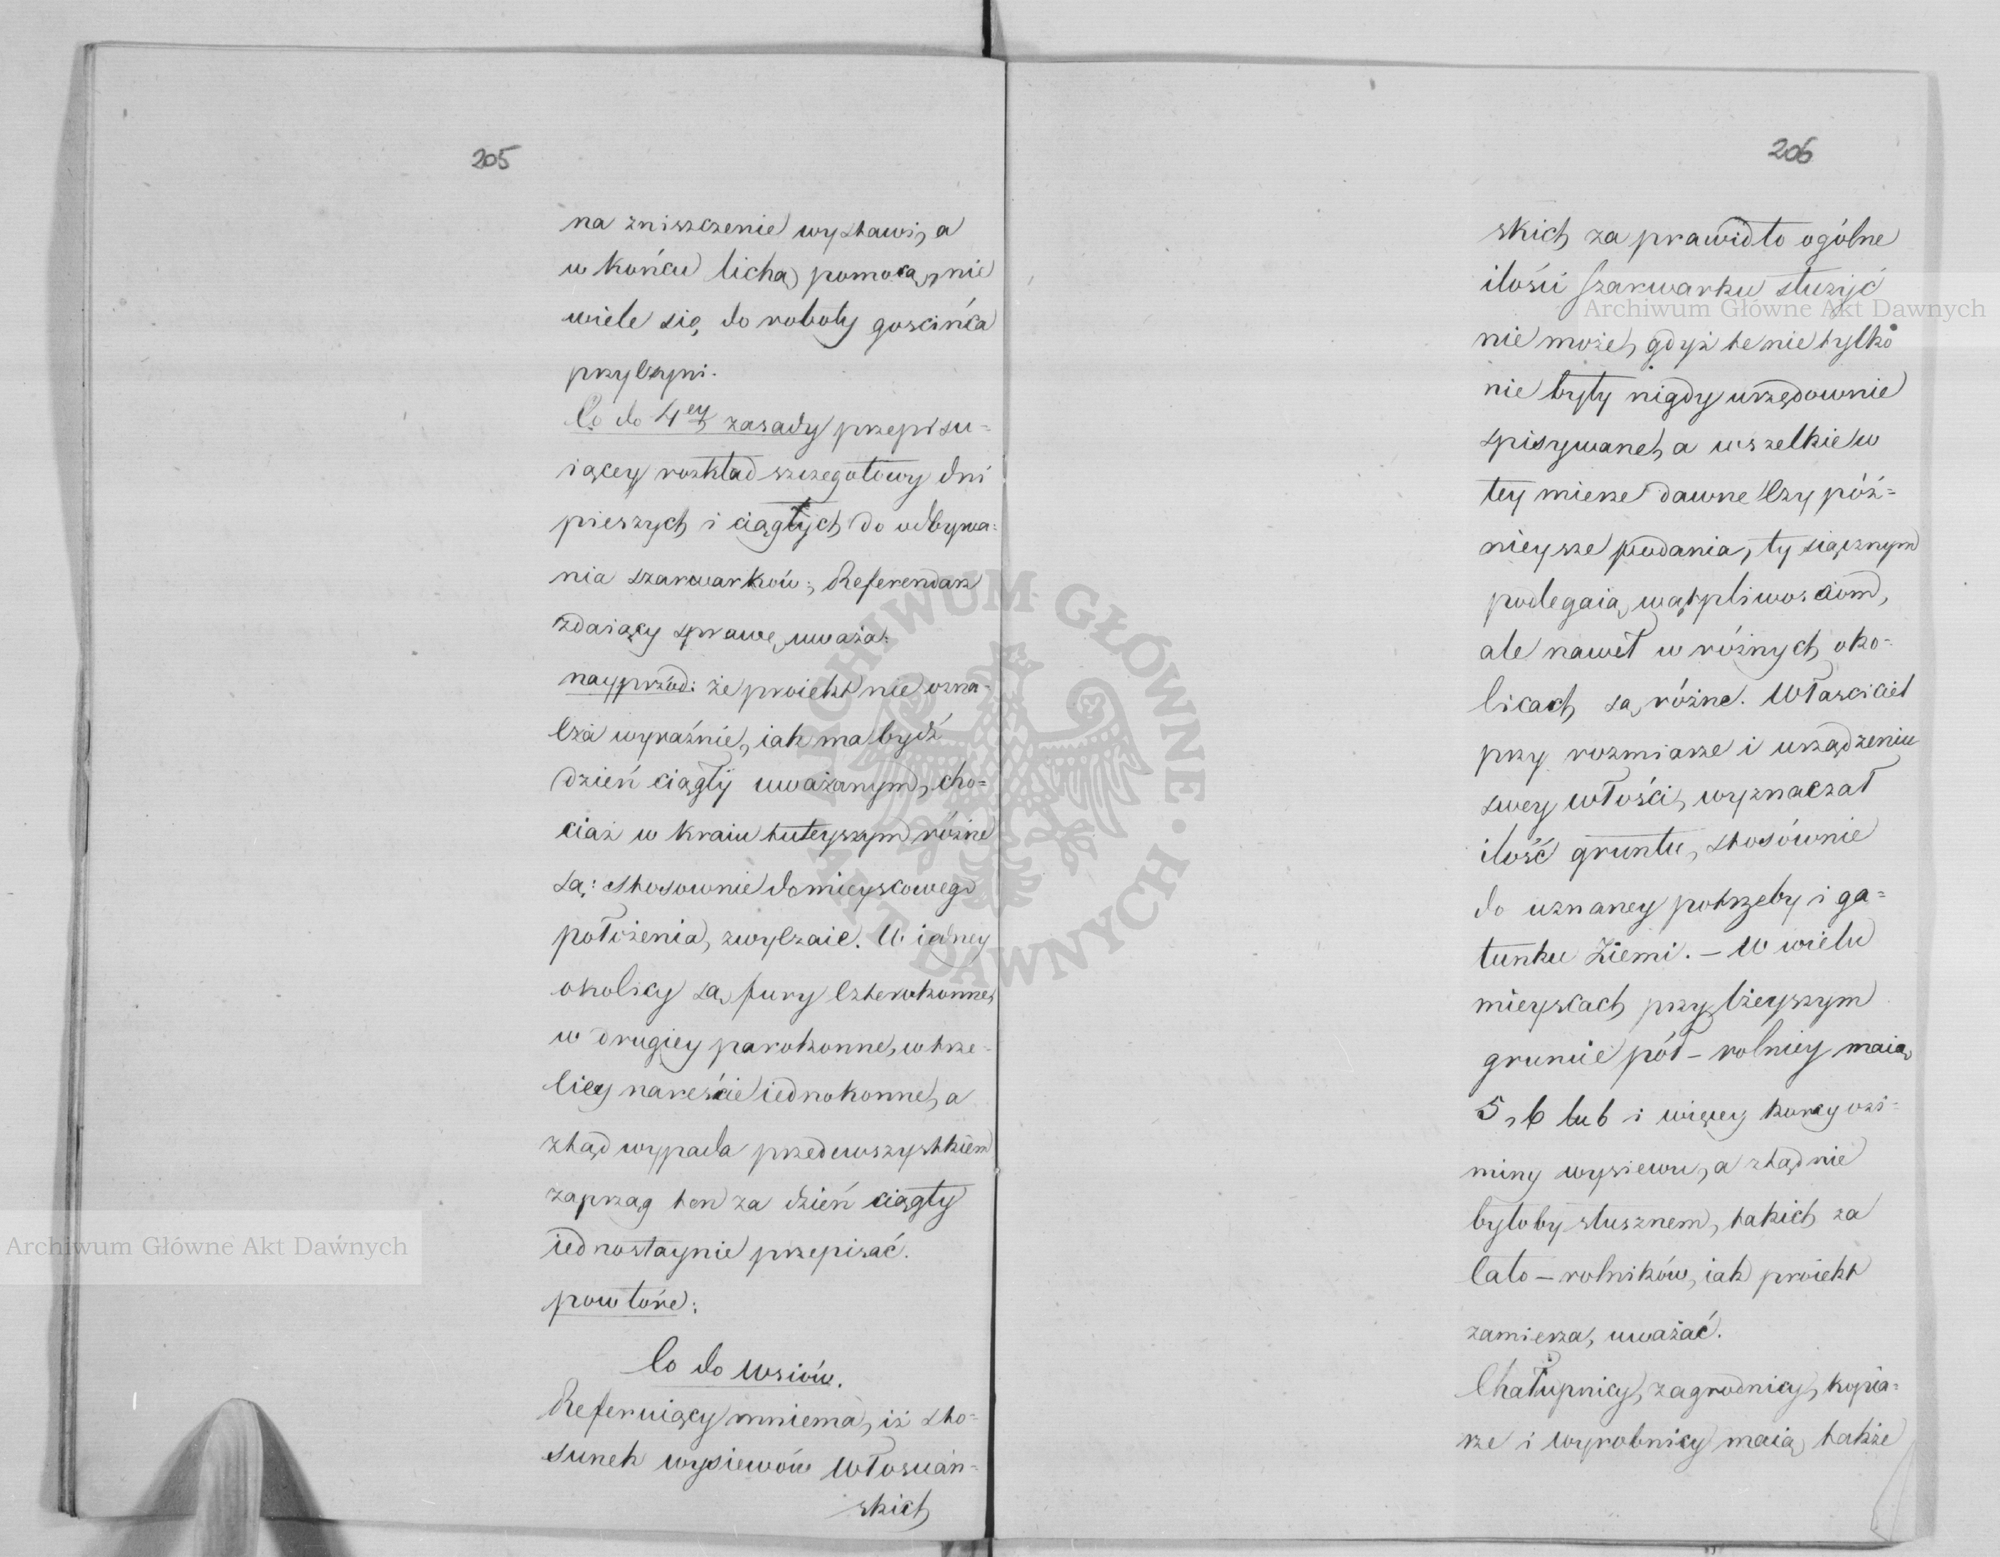 205
na zniszczenie wystawi, a
w końcu lichą pomocą, nie
wiele się do roboty gościńca
przyczyni.
Co do 4ey zasady przepisu-
iącey rozkład szczegołowy dni
pieszych i ciągłych do odbywa-
nia szarwarków; Referendarz
zdaiący sprawę uważa:
nayprzód: że proiekt nie ozna-
cza wyraźnie, iak ma bydź
dzień ciągły uważanym, cho-
ciaż w kraiu tuteyszym różne
są: stosownie do mieyscowego
położenia, zwyczaie. W iedney
okolicy są fury czterokonne,
w drugiey parokonne, w trze-
ciey nareście iednokonne, a
ztąd wypada przedewszystkiem
zaprząg ten za dzień ciągły
iednostaynie przepisać.
powtóre:
Co do Wsiów.
Referuiący mniema, iż sto-
sunek wysiewów Włościań-
skich
206
skich za prawidło ogólne
ilości szarwarku służyć
nie może, gdyż te nie tylko
nie były nigdy urzędownie
spisywane, a wszelkie w
tey mierze dawne czy póź-
nieysze podania, tysiącznym
podlegaią wątpliwościom,
ale nawet w różnych oko-
licach są różne. Właściciel
przy rozmiarze i urządzeniu
swey włości, wyznaczał
ilość gruntu, stosównie
do uznaney potrzeby i ga-
tunku Ziemi. – W wielu
mieyscach przy lżeyszym
gruncie pół – rolnicy maią
5, 6 lub i więcey korcy ozi-
miny wysiewu, a ztąd nie
byłoby słusznem, takich za
cało – rolników, iak proiekt
zamierza, uważać.
Chałupnicy, zagrodnicy, kopia-
rze i wyrobnicy maią także
Archiwum Główne Akt Dawnych
Archiwum Główne Akt Dawnych
ARCHIWUM GŁÓWNE · AKT DAWNYCH ·